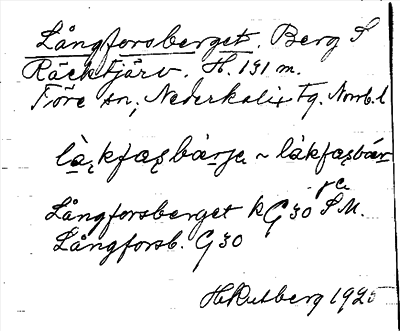 Långforsberget. Berg S
Räcktjärv. H. 191 m.
Töre sn; Nederkalix Tg. Norrb. l
là̱kfǫsbä̀rje ~ làkfǫsbär
je
Långforsberget kG30 SM.
Långforsb. G30
HRutberg 1925